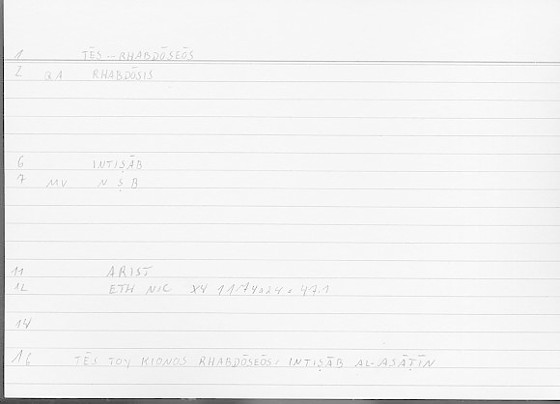 1 TĒS -- RHABDŌSEŌS
2 RHABDŌSIS
6 INTIṢĀB
7 MV N Ṣ B
11 ARIST
12 ETH NIC X4 1174a24
14
16 TĒS TOY KIONOS RHABDŌSEŌS: INTIṢĀB AL-ASĀṬĪN